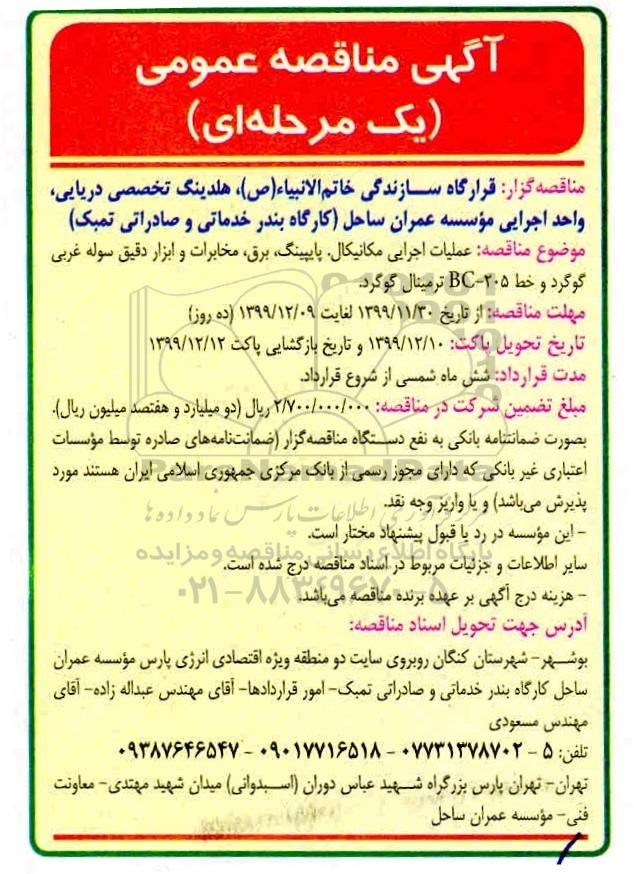 آگهی مناقصه عمومی
(یک مرحله‌ای)
مناقصه‌گزار: قرارگاه ســازندگی خاتم‌الانبیاء(ص)، هلدینگ تخصصی دریایی،
واحد اجرایی مؤسسه عمران ساحل (کارگاه بندر خدماتی و صادراتی تمبک)
موضوع مناقصه: عملیات اجرایی مکانیکال. پایپینگ، برق، مخابرات و ابزار دقیق سوله غربی
گوگرد و خط BC-۲۰۵ ترمینال گوگرد.
مهلت مناقصه: از تاریخ ۱۳۹۹/۱۱/۳۰ لغایت ۱۳۹۹/۱۲/۰۹ (ده روز)
تاریخ تحویل پاکت: ۱۳۹۹/۱۲/۱۰ و تاریخ بازگشایی پاکت ۱۳۹۹/۱۲/۱۲
مدت قرارداد: شش ماه شمسی از شروع قرارداد.
مبلغ تضمین شرکت در مناقصه: ۲/۷۰۰/۰۰۰/۰۰۰ ریال (دو میلیارد و هفتصد میلیون ریال).
بصورت ضمانتنامه بانکی به نفع دستگاه مناقصه‌گزار (ضمانت‌نامه‌های صادره توسط مؤسسات
اعتباری غیر بانکی که دارای مجوز رسمی از بانک مرکزی جمهوری اسلامی ایران هستند مورد
پذیرش می‌باشد) و یا واریز وجه نقد.
- این مؤسسه در رد یا قبول پیشنهاد مختار است.
سایر اطلاعات و جزئیات مربوط در اسناد مناقصه درج شده است.
- هزینه درج آگهی بر عهده برنده مناقصه می‌باشد.
آدرس جهت تحویل اسناد مناقصه:
بوشــهر- شهرستان کنگان روبروی سایت دو منطقه ویژه اقتصادی انرژی پارس مؤسسه عمران
ساحل کارگاه بندر خدماتی و صادراتی تمبک- امور قراردادها- آقای مهندس عبداله زاده- آقای
مهندس مسعودی
تلفن: ۵ - ۰۷۷۳۱۳۷۸۷۰۲ - ۰۹۰۱۷۷۱۶۵۱۸ - ۰۹۳۸۷۶۴۶۵۴۷
تهران- تهران پارس بزرگراه شــهید عباس دوران (اســبدوانی) میدان شهید مهتدی- معاونت
فنی- مؤسسه عمران ساحل
ParsNamadData
پایگاه اطلاع رسانی مناقصه و مزایده
۰۲۱-۸۸۳۴۹۶۷۰-۵